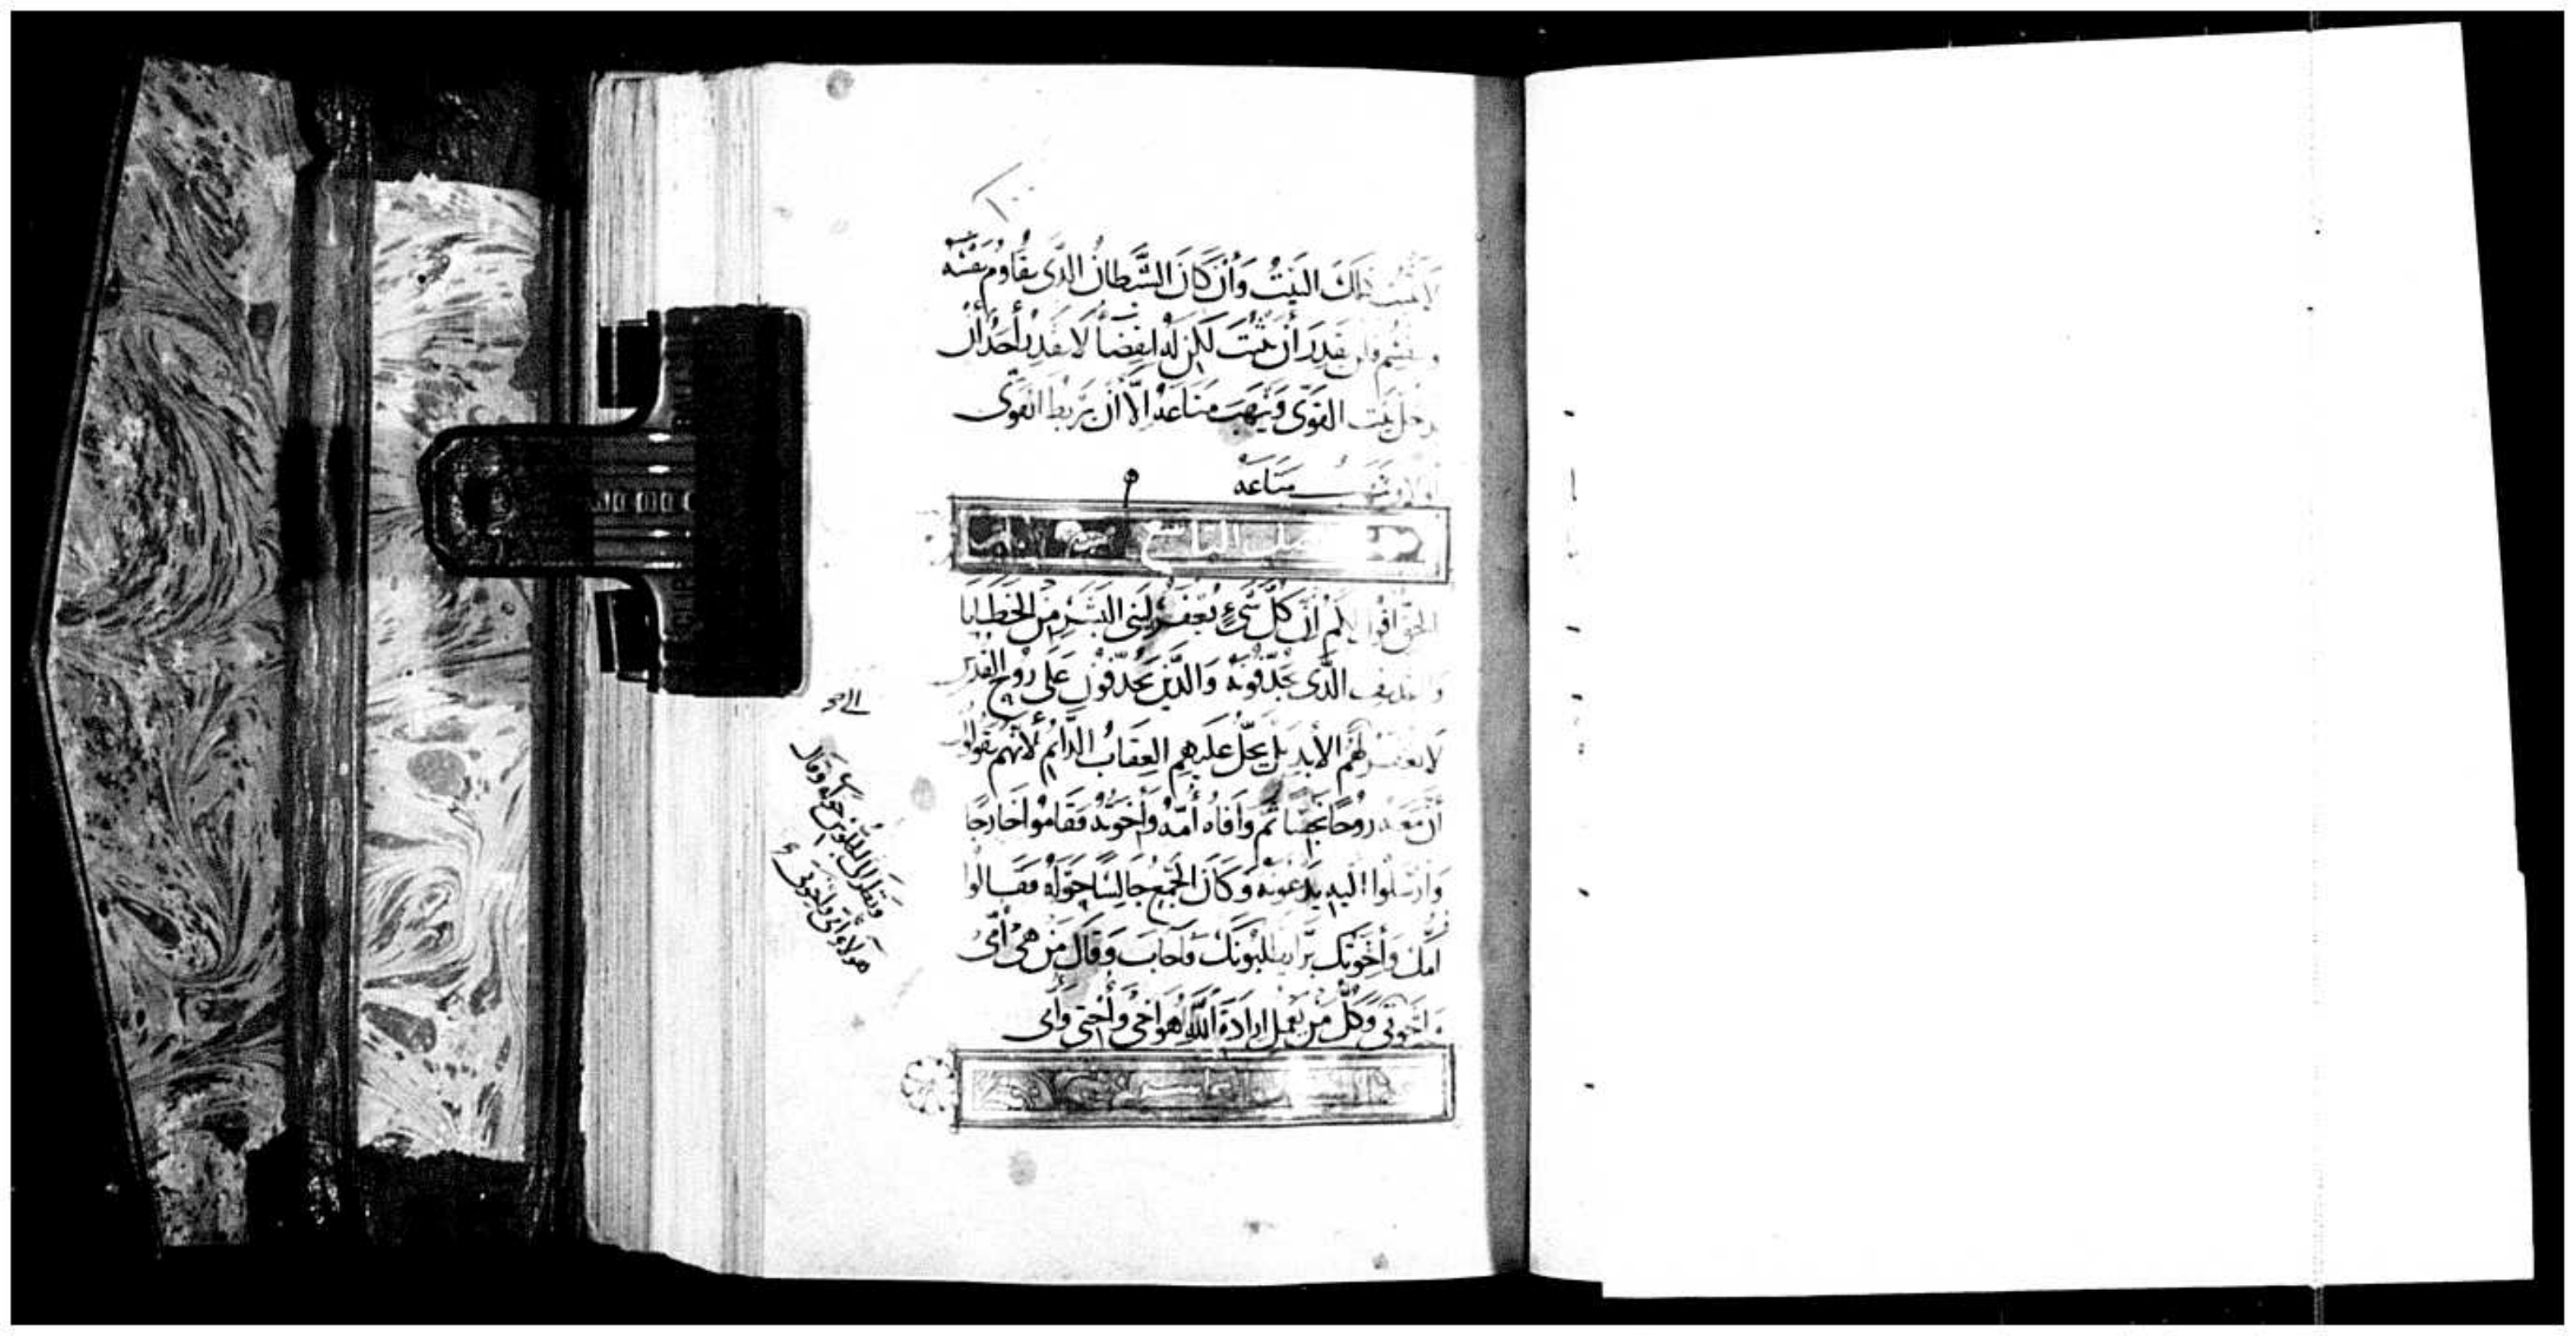 لا يثبت ذلك البَيتُ وَأن كانَ الشَّيطانُ الذى يقاوم نفسَه
فلن يقدر أن يثبت لكن له انقضاً لا يقدر أحد أن
يدخل بَيت القوىّ وَينهَبَ متاعَه إلّا أن يربط القوىّ
أولا وينهب متاعه
الفصل التاسع
الحقّ اقول لكم أنّ كلّ شَىءٍ يُغفَر لبَنى البشَرِ مِن الخطايَا
والتجديف الذى يجدّفُونهُ وَالذّين يجدّفون عَلى رُوح القدس
لا يغفر لهم الأبد بل يحلّ عليهم العِقابُ الدائم لأنهم يقولون
أنّ معَه روحًا نجسًا ثم وافاه أمّه وأخوته فقاموا خارجًا
وَارسَلوا اليه يدعونه وَكانَ الجَمع جالسًا حَوله فقالوا
امّك وأخوتك برّا يطلبونك فأجابَ وقال مَن هي أمّى
وإخوتي وَكلّ مَن يعمل ارادة الله هُو اخى وأختى وأمى
ونظر الى الجلوس حوله وقال
هولاء أمى واخوتى